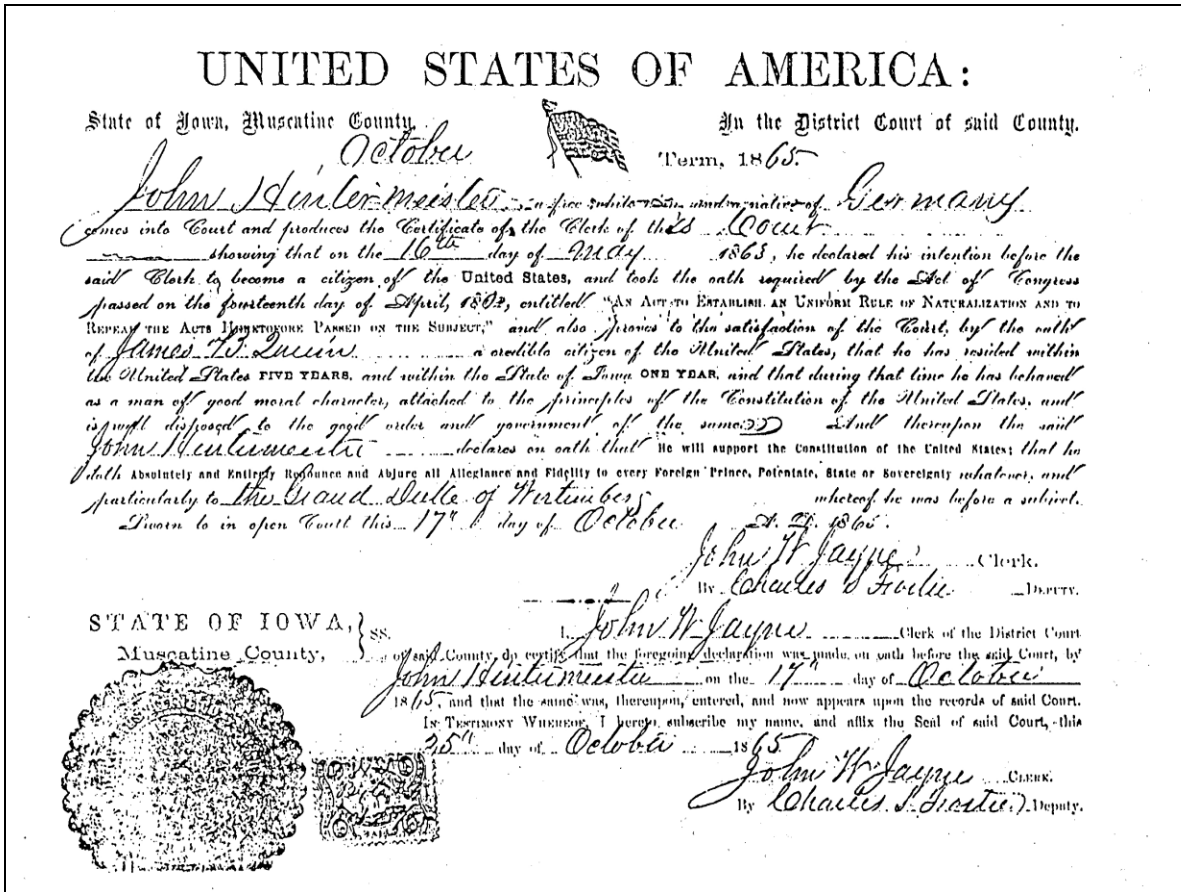 UNITED STATES OF AMERICA:
State of Iowa, Muscatine County. In the District Court of said County.
October Term, 1865.
John Hintermeister, a free white man and a native of Germany
comes into Court and produces the Certificate of the Clerk of this Court
showing that on the 16th day of May 1863, he declared his intention before the
said Clerk to become a citizen of the United States, and took the oath required by the Act of Congress
passed on the fourteenth day of April, 1802, entitled "AN ACT TO ESTABLISH AN UNIFORM RULE OF NATURALIZATION AND TO
REPEAL THE ACTS HERETOFORE PASSED ON THE SUBJECT," and also proves to the satisfaction of the Court, by the oath
of James B. Quinn a credible citizen of the United States, that he has resided within
the United States FIVE YEARS, and within the State of Iowa ONE YEAR, and that during that time he has behaved
as a man of good moral character, attached to the principles of the Constitution of the United States, and
is well disposed to the good order and government of the same And thereupon the said
John Hintermeister declares on oath that He will support the Constitution of the United States; that he
doth Absolutely and Entirely Renounce and Abjure all Allegiance and Fidelity to every Foreign Prince, Potentate, State or Sovereignty whatever, and
particularly to the Grand Duke of Wirtemberg whereof he was before a subject.
Sworn to in open Court this 17" day of October A. D. 1865.
John W Jayne Clerk.
By Charles S DEPUTY.
STATE OF IOWA, } SS. I, John W Jayne Clerk of the District Court
Muscatine County, of said County, do certify that the foregoing declaration was made, on oath before the said Court, by
John Hintermeister on the 17" day of October
1865, and that the same was, thereupon, entered, and now appears upon the records of said Court.
IN TESTIMONY WHEREOF, I hereto subscribe my name, and affix the Seal of said Court, this
25" day of October 1865
John W Jayne CLERK.
By Charles S. Deputy.